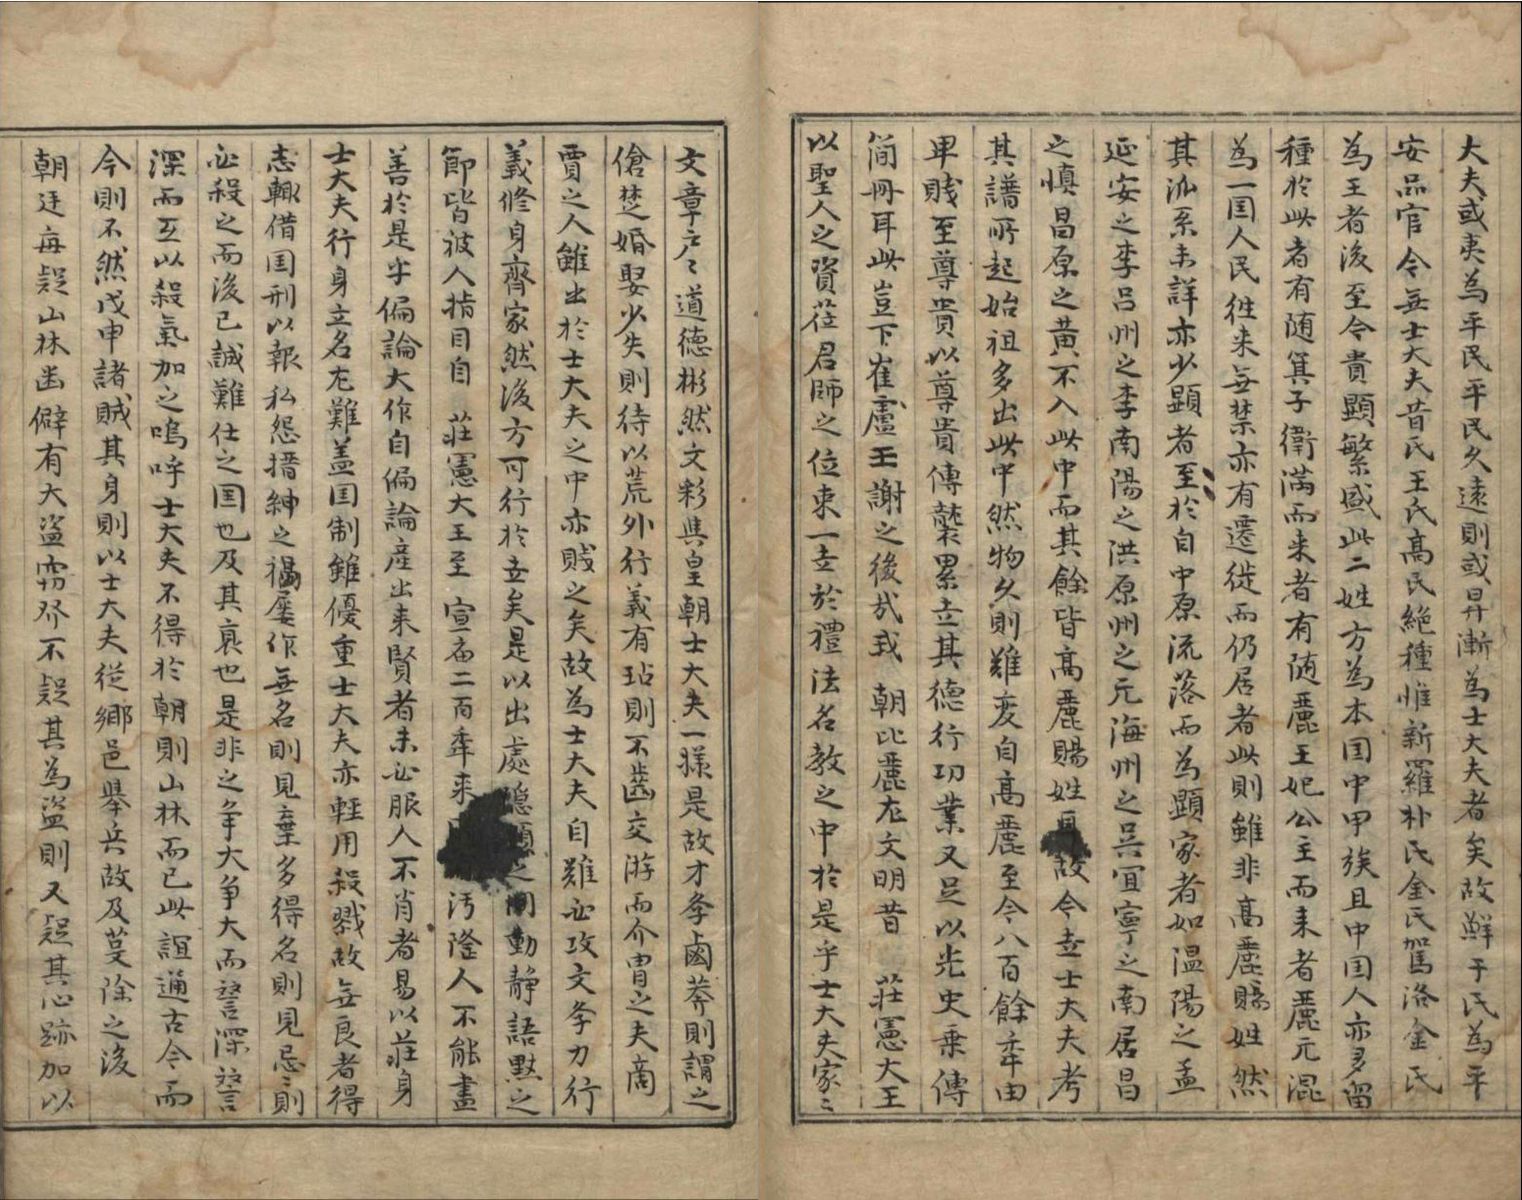 大夫或夷為平民平民久遠則或昇漸為士大夫者矣故鮮于民為平
安品官令無士大夫昔氏王氏高民絶種惟新羅朴氏金民駕洛金氏
為王者後至今貴顯繁盛此二姓方為本囯中甲族且中囯人亦多留
種於此者有随箕子衛满而来者有随麗王妃公主而来者麗元混
為一囯人民徃来無禁亦有遷徙而仍居者此則雖非高麗賜姓然
其泒系未詳亦少顯者至於自中原流落而為顯家者如温陽之孟
延安之李吕州之李南陽之洪原州之元海州之吴宜寧之南居昌
之愼昌原之黄不入此中而其餘皆高麗賜姓故今世士大夫考
其譜所起始祖多出此中然物久則難变自高麗至今八百餘年由
卑賎至尊貴以尊貴傳襲累世其德行功業又足以光史乘傳
简冊耳此豈下崔盧王謝之後㢤我 朝比麗尤文明昔 莊憲大王
以聖人之資莅君師之位束一世於禮法名教之中於是乎士大夫家〻
文章户〻道德彬然文彩與皇朝士大夫一㨾是故才孝鹵莽則謂之
傖楚婚娶少失則待以荒外行義有玷則不齒交游而介胄之夫商
賈之人雖出於士大夫之中亦賎之矣故為士大夫自難必攻文孝力行
義修身齊家然後方可行於世矣是以出處隐顯之間動静語默之
節皆被入指目自 莊憲大王至 宣庙二百年来汚隆人不能盡
善於是乎偏論大作自偏論産出来賢者未必服人不肖者易以莊身
士大夫行身立名尤難盖囯制雖優重士大夫亦輕用殺戮故無良者得
志輙借囯刑以報私怨搢紳之禍屢作無名則見棄多得名則見忌〻則
必殺之而後已誠難仕之囯也及其衰也是非之争大争大而讐深讐
深而互以殺氣加之嗚呼士大夫不得於朝則山林而已此誼通古今而
今則不然戊申諸賊其身則以士大夫從鄉邑舉兵故及芟除之後
朝廷每疑山林幽僻有大盗窃發不疑其為盗則又疑其心跡加以